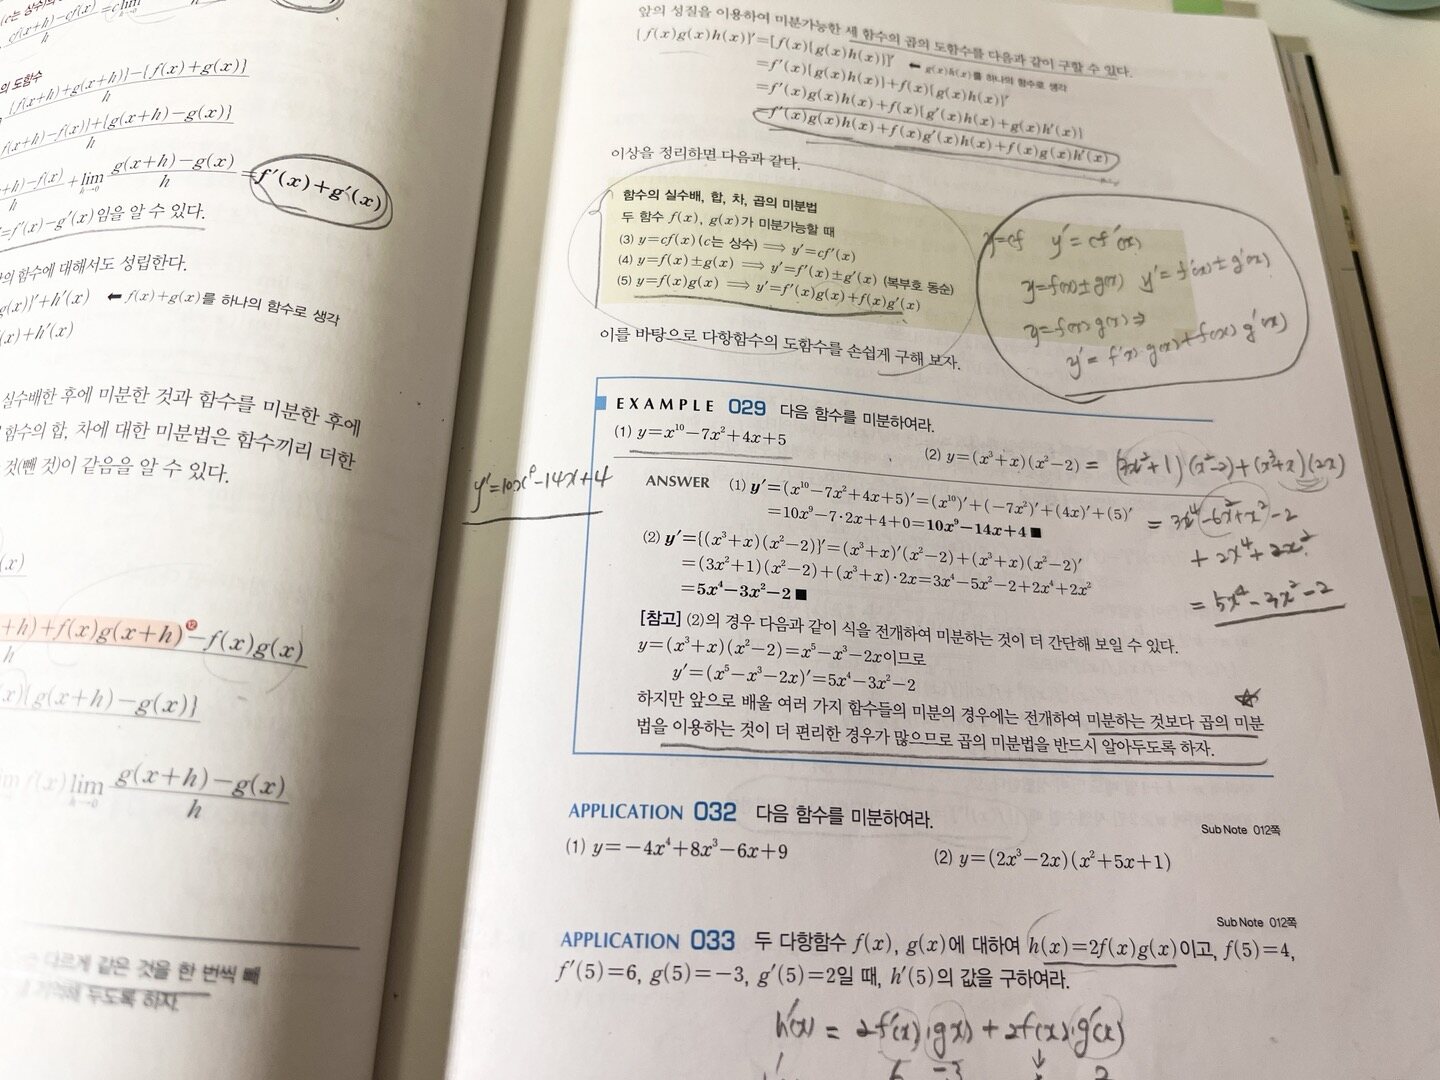 (c는 상수)의
cf(x+h)-cf(x) =clim
h
의 도함수
{f(x+h)+g(x+h)}-{f(x)+g(x)}
h
f(x+h)-f(x)}+{g(x+h)-g(x)}
h
+h)-f(x) +lim g(x+h)-g(x) =f′(x)+g′(x)
h h→0 h
=f′(x)-g′(x)임을 알 수 있다.
의 함수에 대해서도 성립한다.
g(x)}′+h′(x) ← f(x)+g(x)를 하나의 함수로 생각
(x)+h′(x)
실수배한 후에 미분한 것과 함수를 미분한 후에
함수의 합, 차에 대한 미분법은 함수끼리 더한
것(뺀 것)이 같음을 알 수 있다.
(x)
+h)+f(x)g(x+h)⑫-f(x)g(x)
h
x){g(x+h)-g(x)}
f(x)lim g(x+h)-g(x)
h→0 h
다르게 같은 것을 한 번씩 빼
기억해 두도록 하자.
앞의 성질을 이용하여 미분가능한 세 함수의 곱의 도함수를 다음과 같이 구할 수 있다.
{f(x)g(x)h(x)}′=[f(x){g(x)h(x)}]′ ← g(x)h(x)를 하나의 함수로 생각
=f′(x){g(x)h(x)}+f(x){g(x)h(x)}′
=f′(x)g(x)h(x)+f(x){g′(x)h(x)+g(x)h′(x)}
=f′(x)g(x)h(x)+f(x)g′(x)h(x)+f(x)g(x)h′(x)
이상을 정리하면 다음과 같다.
함수의 실수배, 합, 차, 곱의 미분법
두 함수 f(x), g(x)가 미분가능할 때
(3) y=cf(x) (c는 상수) ⟹ y′=cf′(x)
(4) y=f(x)±g(x) ⟹ y′=f′(x)±g′(x) (복부호 동순)
(5) y=f(x)g(x) ⟹ y′=f′(x)g(x)+f(x)g′(x)
y=cf y′=cf′(x)
y=f(x)±g(x) y′=f′(x)±g′(x)
y=f(x)g(x)⇒
y′=f′(x)g(x)+f(x)g′(x)
이를 바탕으로 다항함수의 도함수를 손쉽게 구해 보자.
EXAMPLE 029 다음 함수를 미분하여라.
(1) y=x¹⁰-7x²+4x+5
(2) y=(x³+x)(x²-2) = (3x²+1)(x²-2)+(x³+x)(2x)
= 3x⁴-6x²+x²-2
+2x⁴+2x²
=5x⁴-3x²-2
y′=10x⁹-14x+4
ANSWER (1) y′=(x¹⁰-7x²+4x+5)′=(x¹⁰)′+(-7x²)′+(4x)′+(5)′
=10x⁹-7·2x+4+0=10x⁹-14x+4 ■
(2) y′={(x³+x)(x²-2)}′=(x³+x)′(x²-2)+(x³+x)(x²-2)′
=(3x²+1)(x²-2)+(x³+x)·2x=3x⁴-5x²-2+2x⁴+2x²
=5x⁴-3x²-2 ■
[참고] (2)의 경우 다음과 같이 식을 전개하여 미분하는 것이 더 간단해 보일 수 있다.
y=(x³+x)(x²-2)=x⁵-x³-2x이므로
y′=(x⁵-x³-2x)′=5x⁴-3x²-2
하지만 앞으로 배울 여러 가지 함수들의 미분의 경우에는 전개하여 미분하는 것보다 곱의 미분
법을 이용하는 것이 더 편리한 경우가 많으므로 곱의 미분법을 반드시 알아두도록 하자.
APPLICATION 032 다음 함수를 미분하여라.
Sub Note 012쪽
(1) y=-4x⁴+8x³-6x+9
(2) y=(2x³-2x)(x²+5x+1)
Sub Note 012쪽
APPLICATION 033 두 다항함수 f(x), g(x)에 대하여 h(x)=2f(x)g(x)이고, f(5)=4,
f′(5)=6, g(5)=-3, g′(5)=2일 때, h′(5)의 값을 구하여라.
h′(x) = 2f′(x)·g(x)+2f(x)·g′(x)
6 -3 2